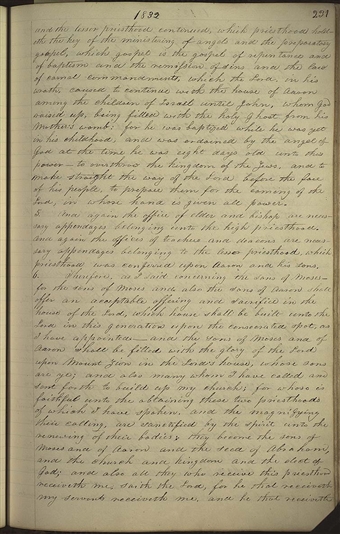 1832 291
and the lesser priesthood continued, which priesthood holds
eth the key of the ministring of angel and the preparatory
gospel, which gospel is the gospel of repentance and
of baptism and the remission of sins, and the law
of carnal commandments, which the Lord, in his
wrath, caused to continue with the house of Aaron
among the children of Israel until John, whom God
raised up, being filled with the holy Ghost from his
Mothers womb: for he was baptized while he was yet
in his childhood, and was ordained by the angel of
God at the time he was eight days old unto this
power— to overthrow the kingdom of the Jews, and to
make straight the way of the Lord before the face
of his people, to prepare them for the coming of the
Lord, in whose hand is given all power.
5. And again the office of elder and bishop are neces-
sary appendages belonging unto the high priesthood.
And again the offices of teacher and deacon are neces-
sary appendages belonging to the lesser priesthood, which
priesthood was confered upon Aaron and his sons.
6. Therefore, as I said concerning the sons of Moses—
for the sons of Moses and also the sons of Aaron shall
offer an acceptable offering and sacrifice in the
house of the Lord, which house shall be built unto the
Lord in this generation upon the consecrated spot, as
I have appointed— and the sons of Moses and of
Aaron shall be filled with the glory of the Lord
upon Mount Zion in the Lord's house, whose sons
are ye; and also many whom I have called and
sent forth to build up my church; for whoso is
faithful unto the obtaining these two priesthoods
of which I have spoken, and the magnifying
their calling, are sanctified by the spirit unto the
renewing of their bodies; they become the sons of
Moses and of Aaron and the seed of Abraham,
and the church and kingdom and the elect of
God; and also all they who receive this priesthood
receiveth me, saith the Lord, for he that receiveth
my servants receiveth me, and he that receiveth